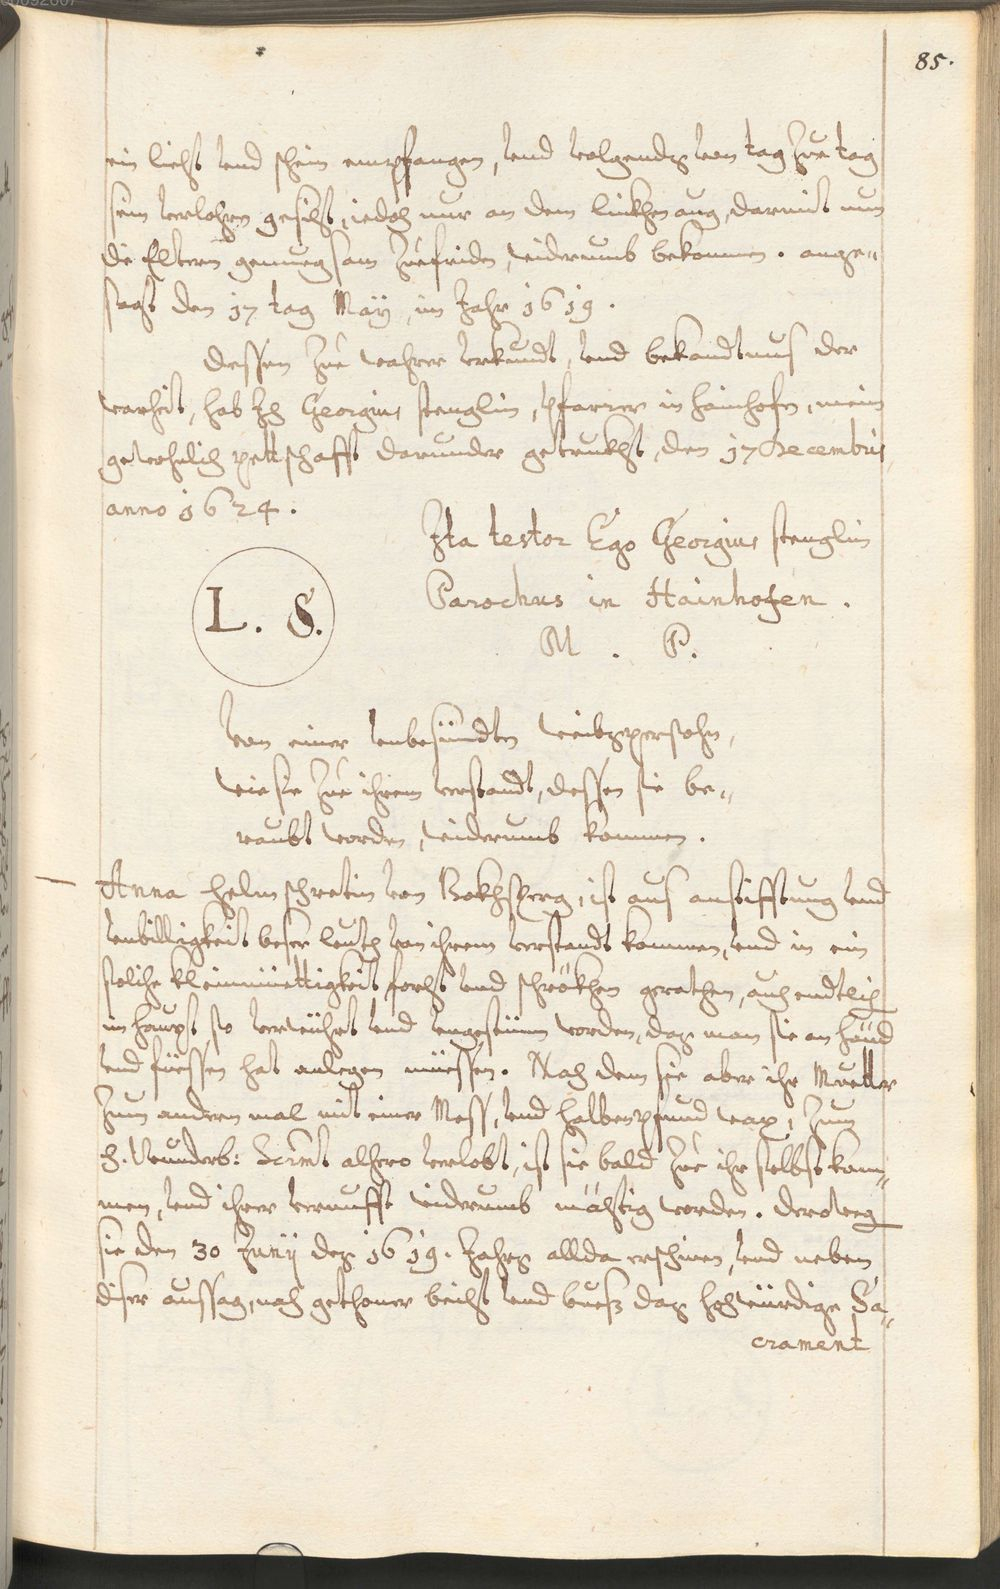 85.
ein liecht vnd schein empfangen, vnd volgendz von tag zue tag
sein verlohren gesicht, iedoch nur an dem linckhen aug, darmit nun
die Eltern genuegsam zuefriden, widerumb bekommen. ange-
sagt den 17 tag Maÿ, im Jahr 1619.
Dessen zue wahrer vrkundt, vnd bekandtnus der
warheit, hab Jch Georgius stenglin, pfarrer in hainhofen, mein
gewohnlich pettschafft darunder getruckht, den 17 Decembris,
anno 1624.
Jta testor Ego Georgius stenglin
Parochus in Hainhofen.
L. S.
M. P.
Von einer vnbesündten weibspersohn,
wie sie zue ihrem verstandt, dessen sie be-
raubt worden, widerumb kommen.
Anna helmschrotin von Bokhsperg, ist aus anstifftung vnd
vnbilligkeit beser leuth von ihrem verstandt kommen, vnd in ein
solche kleinmüettigkeit forcht vnd schröckhen gerathen, auch endtlich
im haupt so verrückt vnd vngestüm worden, daz man sie an händ
vnd füessen hat anlegen müessen. Nach dem sie aber ihr Muetter
zum andern mal mit einer Mess, vnd halben pfund wax, zum
H. Wunderb: Scrmt alhero verlobt, ist sie bald zue ihr selbst kom-
men, vnd ihrer vernufft widerumb mächtig worden. Deroweg
sie den 30 Junÿ dez 1619. Jahrz allda erschinen, vnd neben
diser aussag, nach gethoner beicht vnd buesz daz hochwürdige Sa-
crament